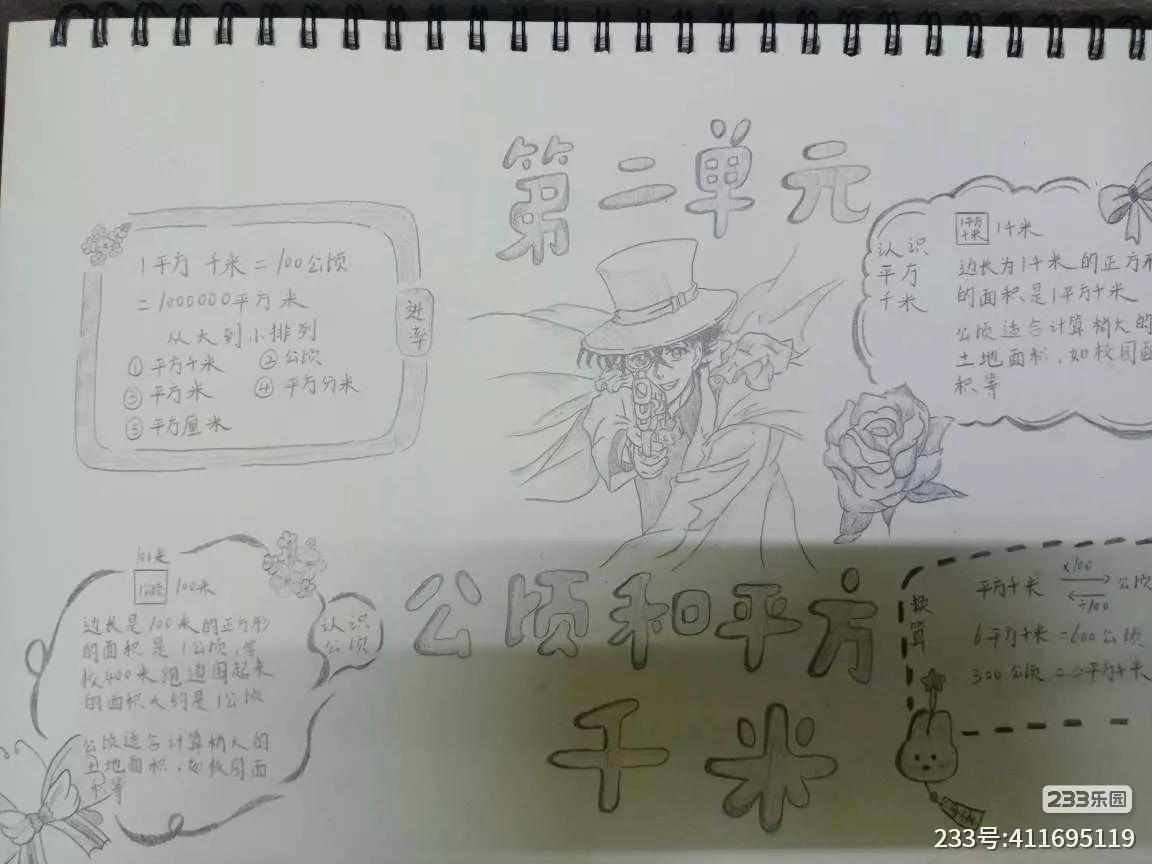 第二单元
1平方千米=100公顷
=1000000平方米
从大到小排列
①平方千米 ②公顷
③平方米 ④平方分米
⑤平方厘米
进率
认识
平方
千米
1千米
边长为1千米的正方形
的面积是1平方千米
公顷适合计算稍大的
土地面积,如校园面
积等
100米
1公顷 100米
边长是100米的正方形
的面积是1公顷,
400米跑道围起来
的面积大约是1公顷
公顷适合计算稍大的
土地面积,如校园面
积等
认识
公顷
公顷和平方
千米
换算
平方千米 ×100 公顷
÷100
6平方千米=600公顷
300公顷=3平方千米
233乐园
233号:411695119